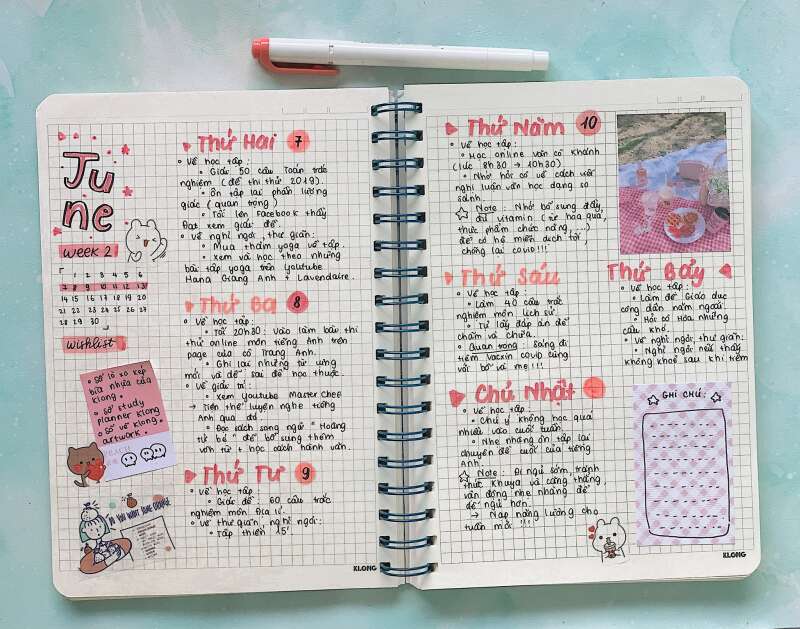 Ju
ne
week 2
1 2 3 4 5 6
7 8 9 10 11 12 13
14 15 16 17 18 19 20
21 22 23 24 25 26 27
28 29 30
wishlist
• Sổ lò xo kẹp
bìa nhựa của
Klong.
• Sổ study
planner Klong
• Sổ vẽ Klong
artwork.
DO YOU WANT SOME ORANGE
Thứ Hai 7
• Về học tập:
• Giải 50 câu Toán trắc
nghiệm (đề thi thử 2019).
• Ôn tập lại phần lượng
giác (quan trọng)
• Tối lên Facebook thầy
Đạt xem giải đề.
• Về nghỉ ngơi, thư giãn:
• Mua thảm yoga về tập.
• Xem và học theo những
bài tập yoga trên Youtube
Hana Giang Anh + Lavendaire.
Thứ Ba 8
• Về học tập:
• Tối 20h30: vào làm bài thi
thử online môn tiếng Anh trên
page của cô Trang Anh.
• Ghi lại những từ vựng
mới và đề sai để học thuộc.
• Về giải trí:
• Xem Youtube Master Chef
→ Tiện thể luyện nghe tiếng
Anh qua đó.
• Đọc sách song ngữ "Hoàng
tử bé" để bổ sung thêm
vốn từ + học cách hành văn.
Thứ Tư 9
• Về học tập:
• Giải đề: 60 câu trắc
nghiệm môn Địa lí.
• Về thư giãn, nghỉ ngơi:
• Tập thiền 15'.
KLONG
Thứ Năm 10
• Về học tập:
• Học online văn cô Khánh
(lúc 8h30 → 10h30)
• Nhờ hỏi cô về cách viết
nghị luận văn học dạng so
sánh.
Note: Nhớ bổ sung đầy
đủ vitamin (từ hoa quả,
thực phẩm chức năng,...)
để có hệ miễn dịch tốt,
chống lại covid!!!
Thứ Sáu
• Về học tập:
• Làm 40 câu trắc
nghiệm môn lịch sử.
• Tự lấy đáp án để
chấm và chữa.
• Quan trọng: Sáng đi
tiêm Vacxin covid cùng
với bố và mẹ!!!
Chủ Nhật
• Về học tập:
• Chú ý không học quá
nhiều vào cuối tuần.
• Nhẹ nhàng ôn tập lại
chuyên đề cuối của tiếng
Anh.
Note: Đi ngủ sớm, tránh
thức khuya và căng thẳng,
vận động nhẹ nhàng để
dễ ngủ hơn.
→ Nạp năng lượng cho
tuần mới!!!
Thứ Bảy
• Về học tập:
• Làm đề Giáo dục
công dân năm ngoái.
• Hỏi cô Hoa những
câu khó.
• Về nghỉ ngơi, thư giãn:
• Nghỉ ngơi nếu thấy
không khoẻ sau khi tiêm
GHI CHÚ
KLONG